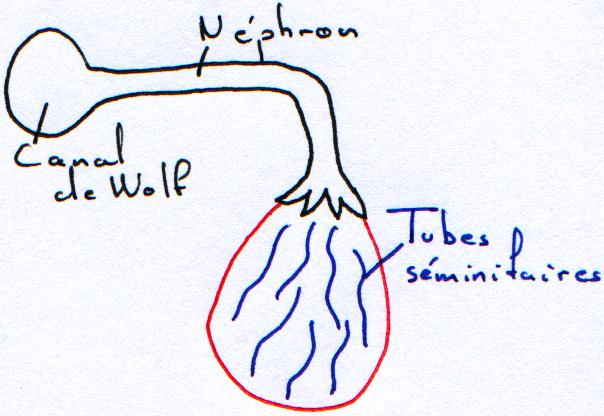 Néphron
Canal
de Wolf
Tubes
séminifaires